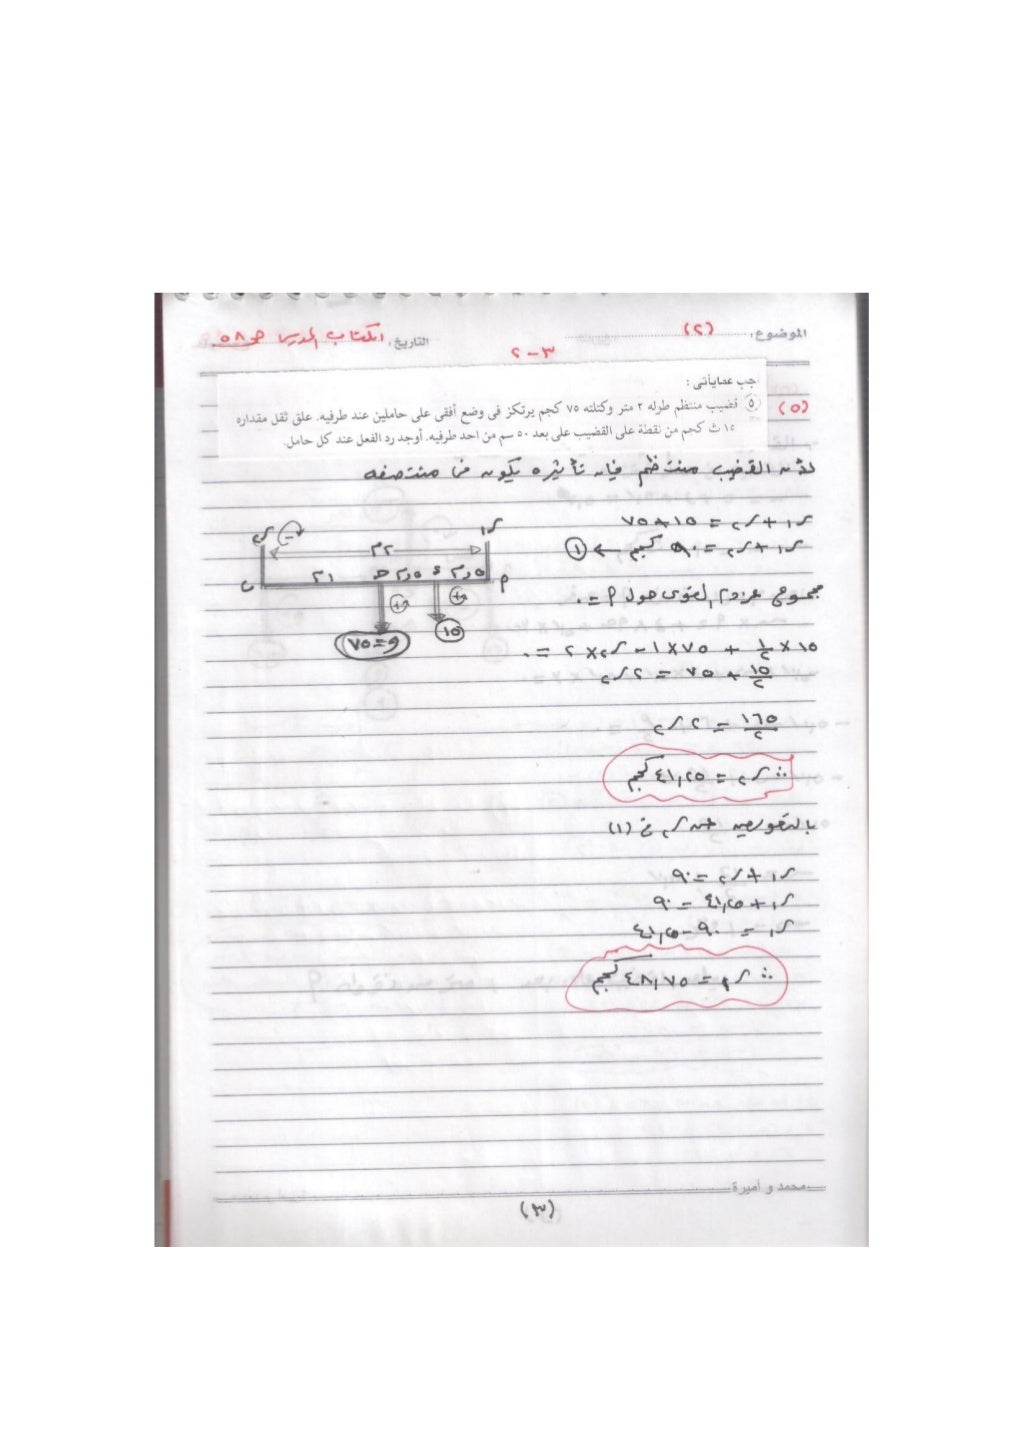 الموضوع: (٢)
التاريخ: الكتاب المدرسى ص ٥٨
٣-٢
جب عما يأتى :
(٥) ٥ قضيب منتظم طوله ٢ متر وكتلته ٧٥ كجم يرتكز فى وضع أفقى على حاملين عند طرفيه. علق ثقل مقداره
١٥ ث كجم من نقطة على القضيب على بعد ٥٠ سم من احد طرفيه. أوجد رد الفعل عند كل حامل.
لأن القضيب منتظم فإن تأثيره يكون فى منتصفه
ر١ + ر٢ = ١٥ + ٧٥
ر١ + ر٢ = ٩٠ كجم ← ①
مجموع عزوم القوى حول P = ٠
١٥ × ١/٢ + ٧٥ × ١ - ر٢ × ٢ = ٠
١٥/٢ + ٧٥ = ٢ ر٢
١٦٥/٢ = ٢ ر٢
∴ ر٢ = ٤١,٢٥ كجم
بالتعويض عن ر٢ فى (١)
ر١ + ر٢ = ٩٠
ر١ + ٤١,٢٥ = ٩٠
ر١ = ٩٠ - ٤١,٢٥
∴ ر١ = ٤٨,٧٥ كجم
ر١ ر٢ -
٢م
P ٥ر٠م ء ٥ر٠م ح ١م ب
+ +
١٥ و=٧٥
محمد و اميرة
(٣)